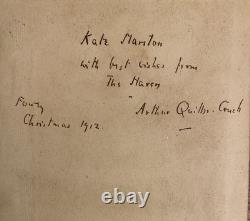 Kate Marston
with best wishes from
The Haven
Fowey
Arthur Quiller-Couch
Christmas 1912.